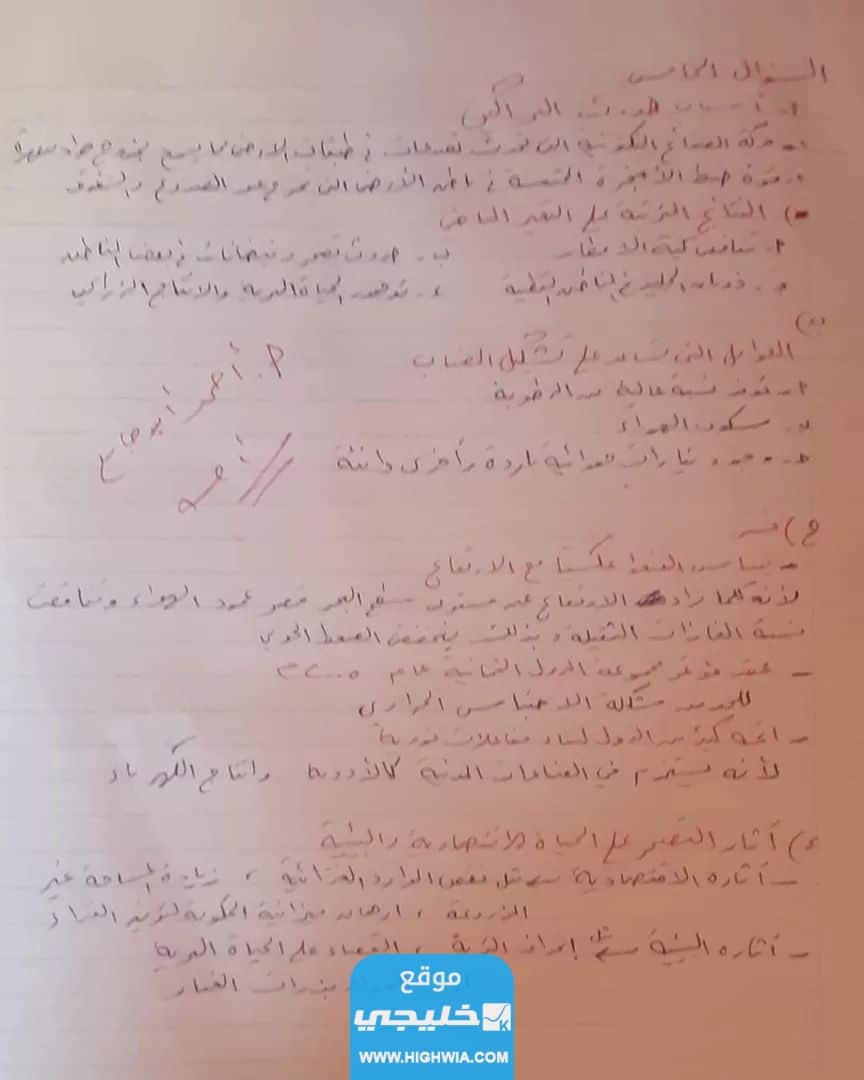 السؤال الخامس
أ. أسباب حدوث البراكين
١- حركة الصفائح التكتونية التي تحدث تصدعات في طبقات الأرض مما يسمح بخروج
٢- قوة ضغط الأبخرة المحتبسة في باطن الأرض التي تخرج عبر الصدوع والشقوق
النتائج المترتبة على التغير المناخي
أ. تناقص كمية الأمطار ب. حدوث تصحر وفيضانات في بعض المناطق
ج. ذوبان الجليد في المناطق القطبية د. تدهور الحياة البرية والانتاج الزراعي
ب)
العوامل التي تساعد على تشكيل الضباب
أ- توفر نسبة عالية من الرطوبة
ب. سكون الهواء
ج- وجود تيارات هوائية باردة وأخرى دافئة
أ. أحمد أبو
ج) فسر
- يتناسب الضغط عكسيا مع الارتفاع
لأنه كلما زاد الارتفاع عن مستوى سطح البحر قصر عمود الهواء وتناقصت
نسبة الغازات الثقيلة وبذلك ينخفض الضغط الجوي
- عقد مؤتمر مجموعة الدول الثمانية عام ٢٠٠٥م
للحد من مشكلة الاحتباس الحراري
- اتجه كثير من الدول لبناء مفاعلات نووية
لأنه يستخدم في الصناعات المدنية كالأدوية وانتاج الكهرباء
د) آثار التصحر على الحياة الاقتصادية والبيئية
- آثاره الاقتصادية نقص الموارد الغذائية ، زيادة المساحة غير
المزروعة ، ارهاق ميزانية الحكومة لتوفير الغذاء
- آثاره البيئية إنجراف التربة ، القضاء على الحياة البرية
الغبار
موقع
خليجي
WWW.HIGHWIA.COM